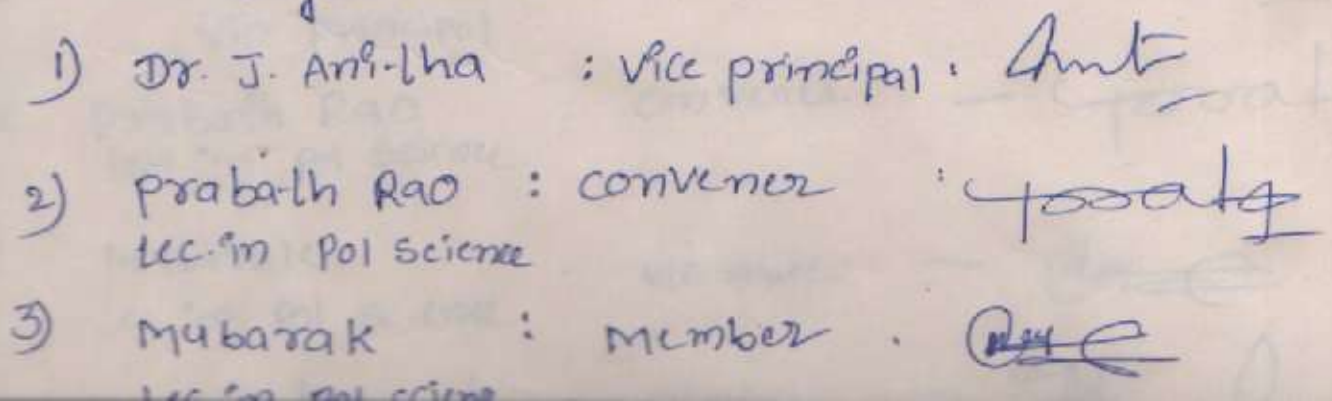 1) Dr. J. Anitha : Vice principal :
2) Prabath Rao : convener :
Lec.in Pol Science
3) Mubarak : member .
Lec in pol scienc